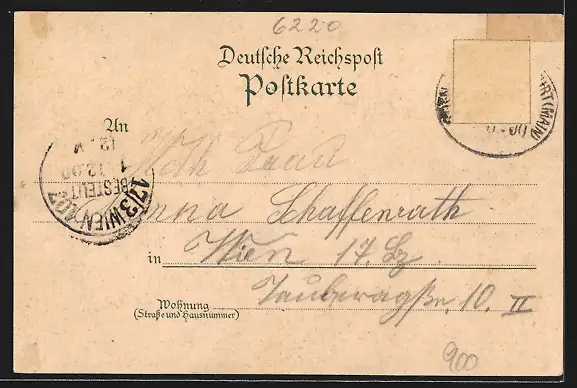 6220
Deutsche Reichspost
Postkarte
An
Frau
Anna Schaffenrath
in Wien 17. Bz.
Wohnung
(Straße und Hausnummer)
Tauberagße. 10. II
900
17/3 WIEN 107
BESTELLT